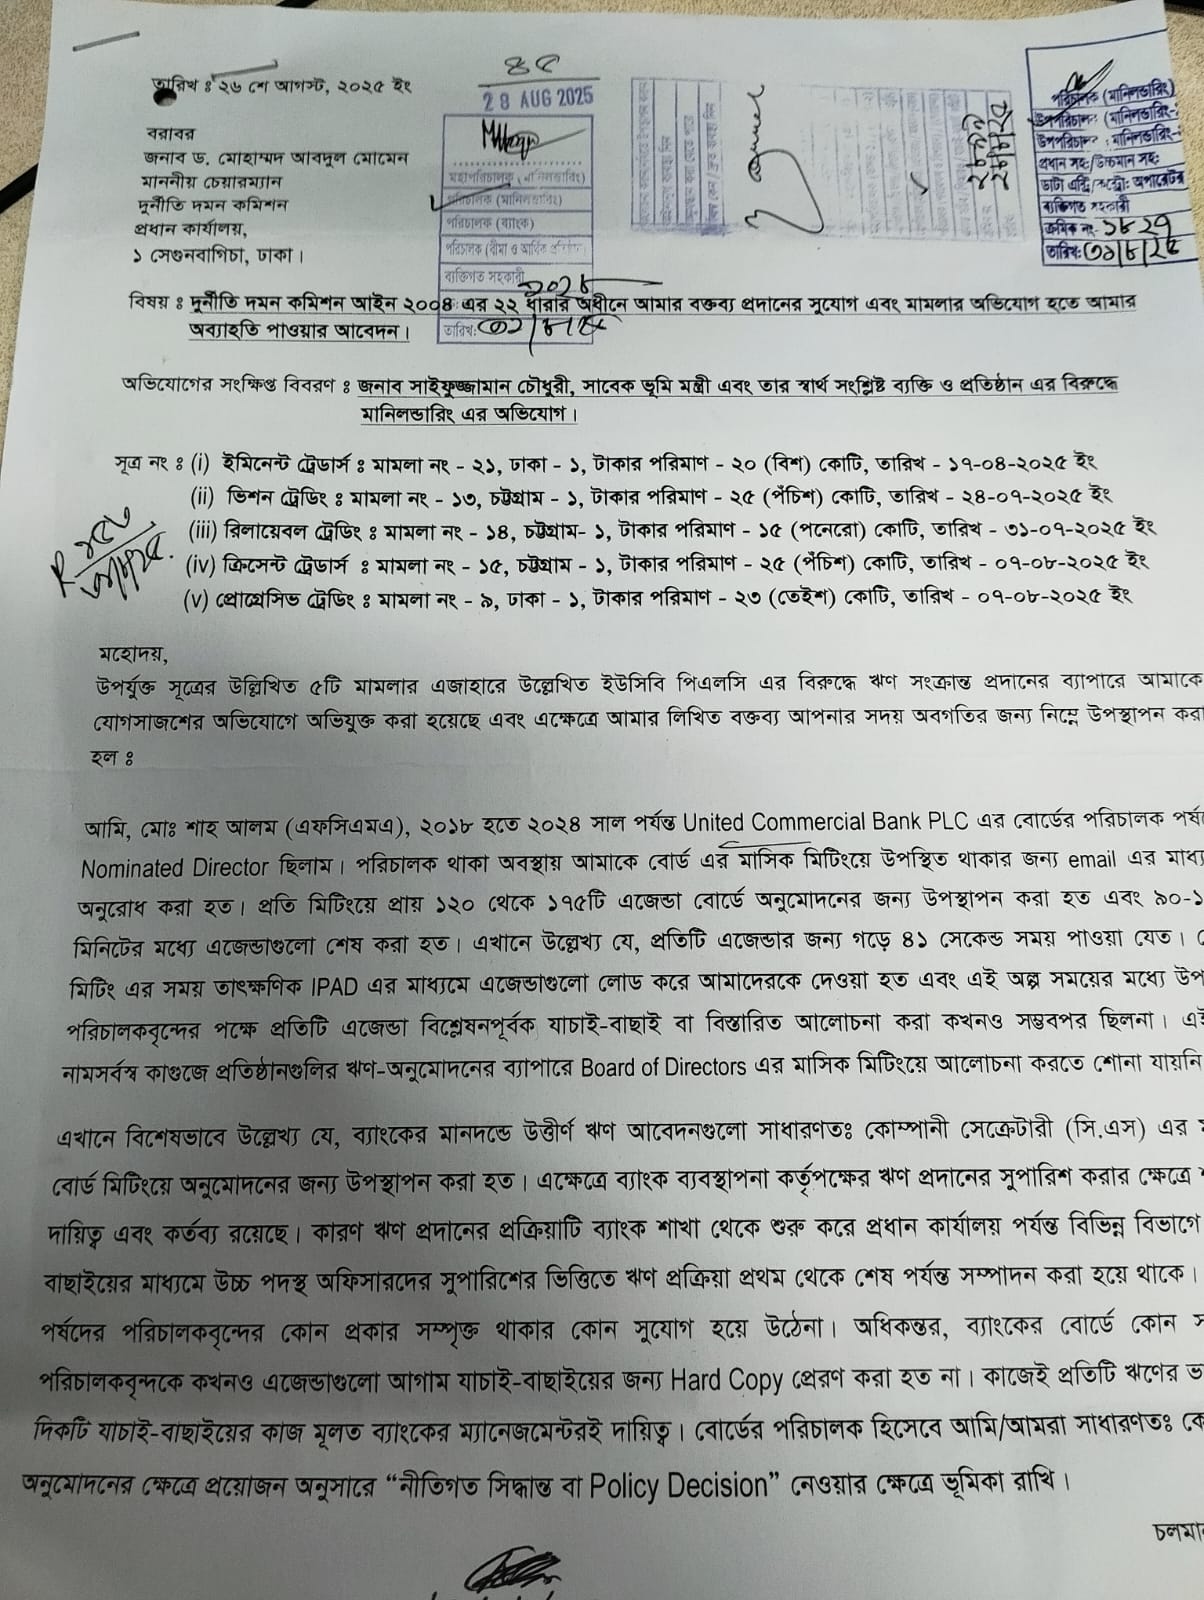 তারিখ ঃ ২৬ শে আগস্ট, ২০২৫ ইং
৪৫
28 AUG 2025
বরাবর
জনাব ড. মোহাম্মদ আবদুল মোমেন
মাননীয় চেয়ারম্যান
দুর্নীতি দমন কমিশন
প্রধান কার্যালয়,
১ সেগুনবাগিচা, ঢাকা।
মহাপরিচালক (মানিলন্ডারিং)
পরিচালক (মানিলন্ডারিং)
পরিচালক (ব্যাংক)
পরিচালক (বীমা ও আর্থিক প্রতিষ্ঠান)
ব্যক্তিগত সহকারী
তারিখ:
পরিচালক (মানিলন্ডারিং)
উপপরিচালক: (মানিলন্ডারিং-
উপপরিচালক : (মানিলন্ডারিং-
প্রধান সহ:/উচ্চমান সহ:
ডাটা এন্ট্রি/কন্ট্রো: অপারেটর
ব্যক্তিগত সহকারী
ক্রমিক নং- ১৮২৭
তারিখ: ৩১/৮/২৫
বিষয় ঃ দুর্নীতি দমন কমিশন আইন ২০০৪ এর ২২ ধারার অধীনে আমার বক্তব্য প্রদানের সুযোগ এবং মামলার অভিযোগ হতে আমার
অব্যাহতি পাওয়ার আবেদন।
অভিযোগের সংক্ষিপ্ত বিবরণ ঃ জনাব সাইফুজ্জামান চৌধুরী, সাবেক ভূমি মন্ত্রী এবং তার স্বার্থ সংশ্লিষ্ট ব্যক্তি ও প্রতিষ্ঠান এর বিরুদ্ধে
মানিলন্ডারিং এর অভিযোগ।
সূত্র নং ঃ (i) ইমিনেন্ট ট্রেডার্স ঃ মামলা নং - ২১, ঢাকা - ১, টাকার পরিমাণ - ২০ (বিশ) কোটি, তারিখ - ১৭-০৪-২০২৫ ইং
(ii) ভিশন ট্রেডিং ঃ মামলা নং - ১৩, চট্টগ্রাম - ১, টাকার পরিমাণ - ২৫ (পঁচিশ) কোটি, তারিখ - ২৪-০৭-২০২৫ ইং
(iii) রিলায়েবল ট্রেডিং ঃ মামলা নং - ১৪, চট্টগ্রাম- ১, টাকার পরিমাণ - ১৫ (পনেরো) কোটি, তারিখ - ৩১-০৭-২০২৫ ইং
(iv) ক্রিসেন্ট ট্রেডার্স ঃ মামলা নং - ১৫, চট্টগ্রাম - ১, টাকার পরিমাণ - ২৫ (পঁচিশ) কোটি, তারিখ - ০৭-০৮-২০২৫ ইং
(v) প্রোগ্রেসিভ ট্রেডিং ঃ মামলা নং - ৯, ঢাকা - ১, টাকার পরিমাণ - ২৩ (তেইশ) কোটি, তারিখ - ০৭-০৮-২০২৫ ইং
মহোদয়,
উপর্যুক্ত সূত্রের উল্লিখিত ৫টি মামলার এজাহারে উল্লেখিত ইউসিবি পিএলসি এর বিরুদ্ধে ঋণ সংক্রান্ত প্রদানের ব্যাপারে আমাকে
যোগসাজশের অভিযোগে অভিযুক্ত করা হয়েছে এবং এক্ষেত্রে আমার লিখিত বক্তব্য আপনার সদয় অবগতির জন্য নিম্নে উপস্থাপন করা
হল ঃ
আমি, মোঃ শাহ আলম (এফসিএমএ), ২০১৮ হতে ২০২৪ সাল পর্যন্ত United Commercial Bank PLC এর বোর্ডের পরিচালক
Nominated Director ছিলাম। পরিচালক থাকা অবস্থায় আমাকে বোর্ড এর মাসিক মিটিংয়ে উপস্থিত থাকার জন্য email এর
অনুরোধ করা হত। প্রতি মিটিংয়ে প্রায় ১২০ থেকে ১৭৫টি এজেন্ডা বোর্ডে অনুমোদনের জন্য উপস্থাপন করা হত এবং ৯০-
মিনিটের মধ্যে এজেন্ডাগুলো শেষ করা হত। এখানে উল্লেখ্য যে, প্রতিটি এজেন্ডার জন্য গড়ে ৪১ সেকেন্ড সময় পাওয়া যেত।
মিটিং এর সময় তাৎক্ষণিক IPAD এর মাধ্যমে এজেন্ডাগুলো লোড করে আমাদেরকে দেওয়া হত এবং এই অল্প সময়ের মধ্যে
পরিচালকবৃন্দের পক্ষে প্রতিটি এজেন্ডা বিশ্লেষনপূর্বক যাচাই-বাছাই বা বিস্তারিত আলোচনা করা কখনও সম্ভবপর ছিলনা।
নামসর্বস্ব কাগুজে প্রতিষ্ঠানগুলির ঋণ-অনুমোদনের ব্যাপারে Board of Directors এর মাসিক মিটিংয়ে আলোচনা করতে শোনা যায়নি
এখানে বিশেষভাবে উল্লেখ্য যে, ব্যাংকের মানদন্ডে উত্তীর্ণ ঋণ আবেদনগুলো সাধারণতঃ কোম্পানী সেক্রেটারী (সি.এস) এর
বোর্ড মিটিংয়ে অনুমোদনের জন্য উপস্থাপন করা হত। এক্ষেত্রে ব্যাংক ব্যবস্থাপনা কর্তৃপক্ষের ঋণ প্রদানের সুপারিশ করার ক্ষেত্রে
দায়িত্ব এবং কর্তব্য রয়েছে। কারণ ঋণ প্রদানের প্রক্রিয়াটি ব্যাংক শাখা থেকে শুরু করে প্রধান কার্যালয় পর্যন্ত বিভিন্ন বিভাগে
বাছাইয়ের মাধ্যমে উচ্চ পদস্থ অফিসারদের সুপারিশের ভিত্তিতে ঋণ প্রক্রিয়া প্রথম থেকে শেষ পর্যন্ত সম্পাদন করা হয়ে থাকে।
পর্ষদের পরিচালকবৃন্দের কোন প্রকার সম্পৃক্ত থাকার কোন সুযোগ হয়ে উঠেনা। অধিকন্তর, ব্যাংকের বোর্ডে কোন
পরিচালকবৃন্দকে কখনও এজেন্ডাগুলো আগাম যাচাই-বাছাইয়ের জন্য Hard Copy প্রেরণ করা হত না। কাজেই প্রতিটি ঋণের
দিকটি যাচাই-বাছাইয়ের কাজ মূলত ব্যাংকের ম্যানেজমেন্টরই দায়িত্ব। বোর্ডের পরিচালক হিসেবে আমি/আমরা সাধারণতঃ
অনুমোদনের ক্ষেত্রে প্রয়োজন অনুসারে “নীতিগত সিদ্ধান্ত বা Policy Decision” নেওয়ার ক্ষেত্রে ভূমিকা রাখি।